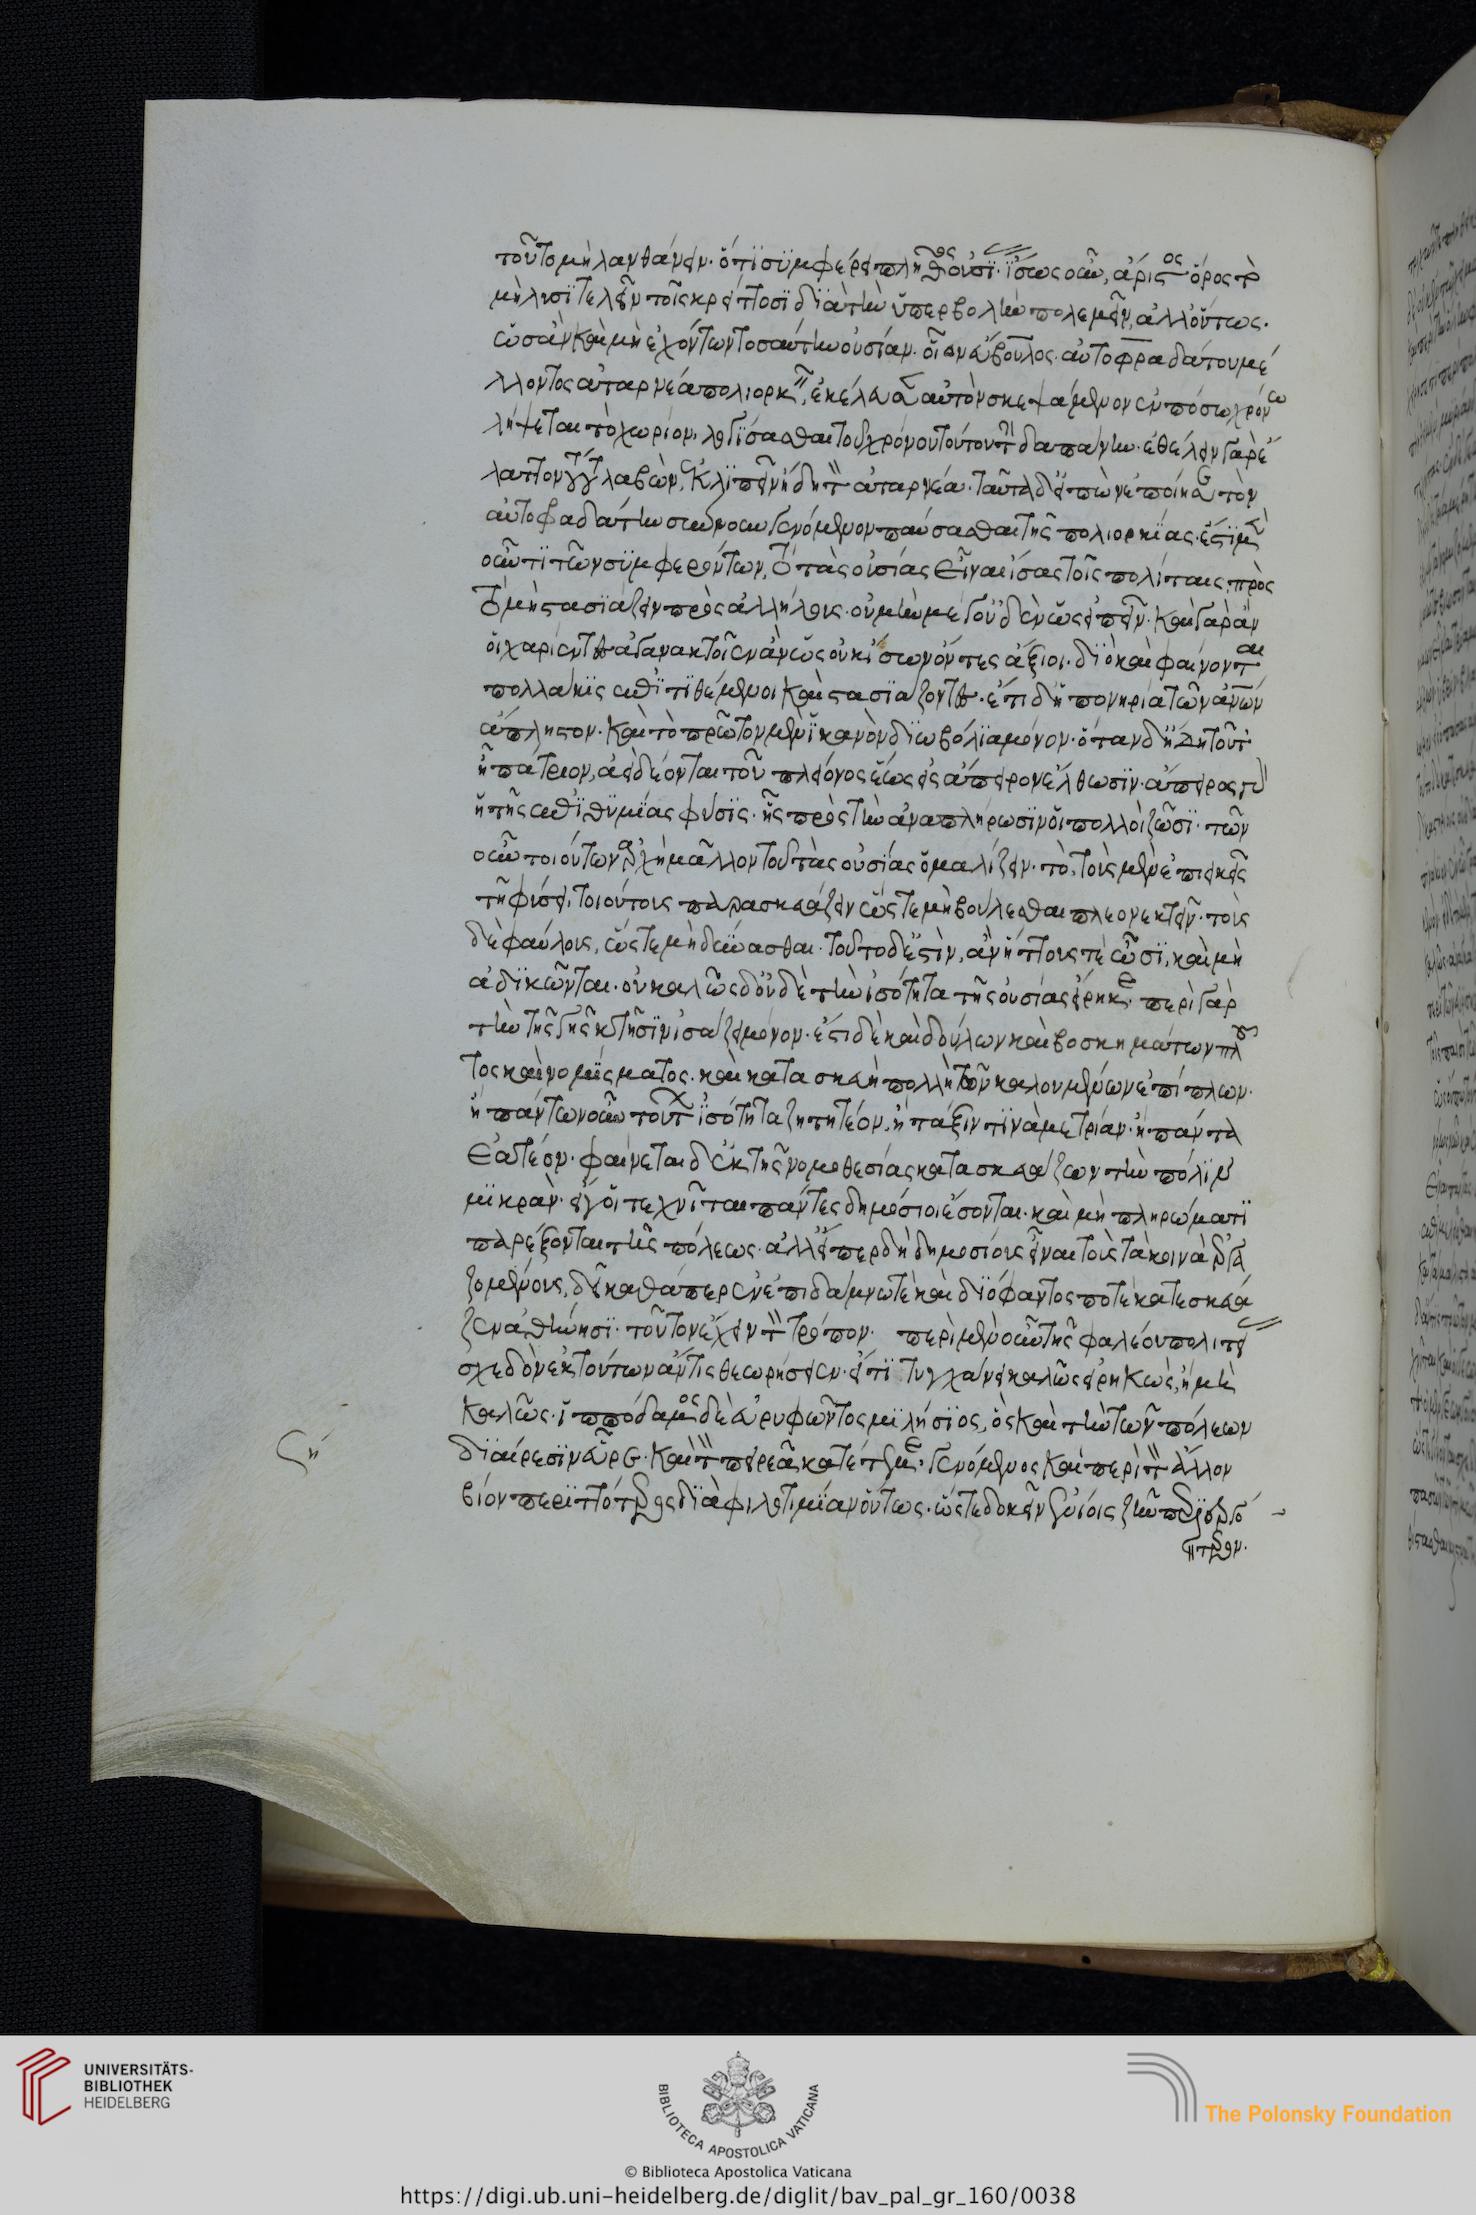 τοῦτο μὴ λανθάνειν. ὅ τι συμφέρει πλῆθος οὐσί. ἴσως οὖν, ἄριστος ὅρος τὸ
μὴ λυσιτελεῖν τοῖς κρείττοσι διὰ τὴν ὑπερβολὴν πολεμεῖν, ἀλλ' οὕτως.
ὡς ἂν καὶ μὴ ἐχόντων τοσαύτην οὐσίαν. οἷον εὔβουλος. αὐτοφραδάτου μέ
λλοντος ἀταρνέα πολιορκεῖν, ἐκέλευσεν αὐτὸν σκεψάμενον ἐν πόσῳ χρόνῳ
λήψεται τὸ χωρίον. λογίσασθαι τοῦ χρόνου τούτου τὴν δαπάνην. ἐθέλειν γὰρ ἔ
λαττον τούτου λαβὼν, ἐκλιπεῖν ἤδη τὸν ἀταρνέα. ταῦτα δ' εἰπὼν ἐποίησε τὸν
αὐτοφραδάτην σύννουν γενόμενον παύσασθαι τῆς πολιορκίας. ἔστι μὲν
οὖν τι τῶν συμφερόντων, τὸ τὰς οὐσίας εἶναι ἴσας τοῖς πολίταις πρὸς
τὸ μὴ στασιάζειν πρὸς ἀλλήλους. οὐ μὴν μέγ' οὐδὲν ὡς εἰπεῖν. καὶ γὰρ ἂν
οἱ χαρίεντες ἀγανακτοῖεν ἂν ὡς οὐκ ἴσων ὄντες ἄξιοι. διὸ καὶ φαίνονται
πολλάκις ἐπιτιθέμενοι καὶ στασιάζοντες. ἔτι δ' ἡ πονηρία τῶν ἀνων
ἄπληστον. καὶ τὸ πρῶτον μὲν ἱκανὸν διωβολία μόνον. ὅταν δ' ἤδη τοῦτ'
ᾖ πάτριον, ἀεὶ δέονται τοῦ πλείονος ἕως εἰς ἄπειρον ἔλθωσιν. ἄπειρος γὰρ
ἡ τῆς ἐπιθυμίας φύσις. ἧς πρὸς τὴν ἀναπλήρωσιν οἱ πολλοὶ ζῶσι. τῶν
οὖν τοιούτων ἀρχὴ μᾶλλον τοῦ τὰς οὐσίας ὁμαλίζειν. τὸ, τοὺς μὲν ἐπιεικεῖς
τῇ φύσει, τοιούτους παρασκευάζειν ὥστε μὴ βούλεσθαι πλεονεκτεῖν. τοὺς
δὲ φαύλους, ὥστε μὴ δύνασθαι. τοῦτο δ' ἐστὶν, ἂν ἥττους τὲ ὦσι, καὶ μὴ
ἀδικῶνται. οὐ καλῶς δ' οὐδὲ τὴν ἰσότητα τῆς οὐσίας εἴρηκε. περὶ γὰρ
τὴν τῆς γῆς κτῆσιν ἰσάζει μόνον. ἔστι δὲ καὶ δούλων καὶ βοσκημάτων πλοῦ
τος καὶ νομίσματος. καὶ κατασκευὴ πολλὴ τῶν καλουμένων ἐπίπλων.
ἢ πάντων οὖν τούτων ἰσότητα ζητητέον, ἢ τάξιν τινὰ μετρίαν. ἢ πάντα
ἐατέον. φαίνεται δ' ἐκ τῆς νομοθεσίας κατασκευάζων τὴν πόλιν
μικράν. εἴ γ' οἱ τεχνῖται πάντες δημόσιοι ἔσονται. καὶ μὴ πλήρωμά τι
παρέξονται τῆς πόλεως. ἀλλ' εἴπερ δὴ δημοσίους εἶναι τοὺς τὰ κοινὰ ἐργα
ζομένους, δεῖ καθάπερ ἐν ἐπιδάμνω τὲ καὶ διόφαντος ποτὲ κατεσκεύα
ζεν ἀθήνησι. τοῦτον ἔχειν τὸν τρόπον. περὶ μὲν οὖν τῆς φαλέου πολιτεί
σχεδὸν ἐκ τούτων ἄν τις θεωρήσειεν. εἴ τι τυγχάνει καλῶς εἰρηκὼς, ἢ μὴ
καλῶς. ἱππόδαμος δὲ εὐρυφῶντος μιλήσιος, ὃς καὶ τὴν τῶν πόλεων
διαίρεσιν εὗρε. καὶ τὸν πειραιᾶ κατέτεμε. γενόμενος καὶ περὶ τὸν ἄλλον
βίον περιττότερος διὰ φιλοτιμίαν οὕτως. ὥστε δοκεῖν ἐνίοις ζῆν περιεργό
τερον.
ση
UNIVERSITÄTS-
BIBLIOTHEK
HEIDELBERG
BIBLIOTECA APOSTOLICA VATICANA
The Polonsky Foundation
© Biblioteca Apostolica Vaticana
https://digi.ub.uni-heidelberg.de/diglit/bav_pal_gr_160/0038